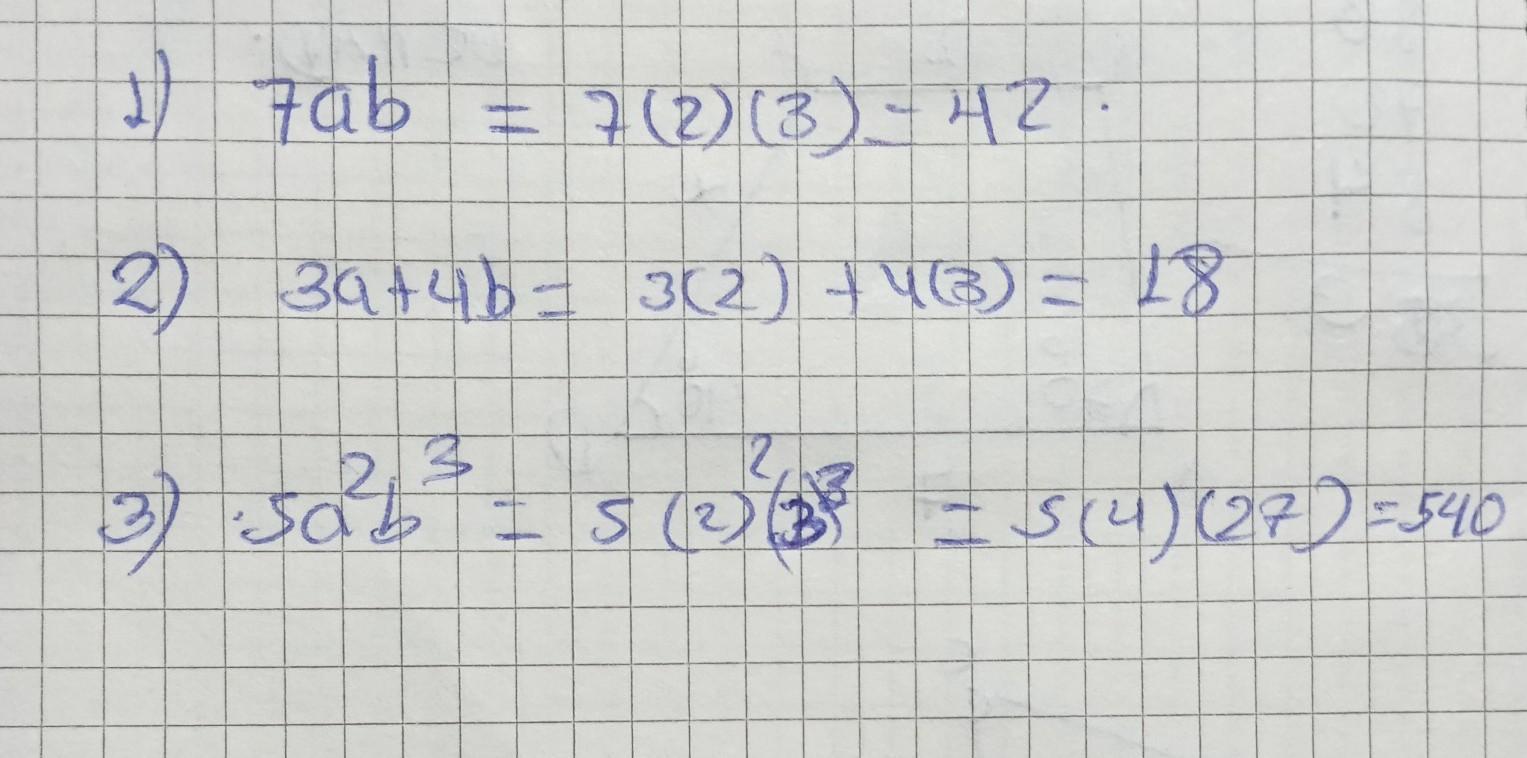 1) 7ab = 7(2)(3) = 42.
2) 3a+4b = 3(2) + 4(3) = 18
3) 5a²b³ = 5(2)²(3)³ = 5(4)(27) = 540